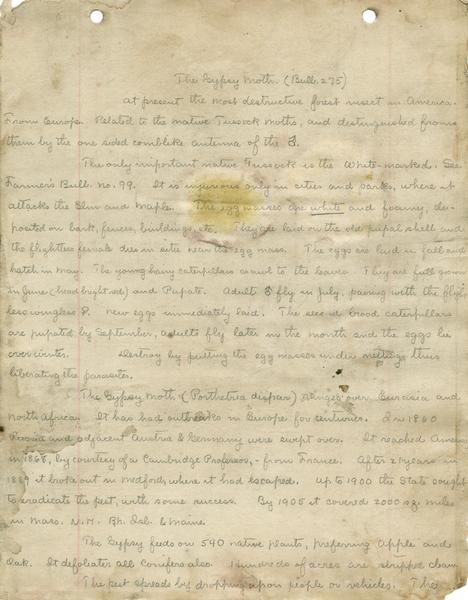 The Gypsy Moth. (Bull. 275)
At present the most destructive forest insect in America.
From Europe. Related to the native Tussock Moths, and distinguished from
them by the one sided comblike antenna of the ♂.
The only important native Tussock is the White-marked. See
Farmer's Bull. no. 99. It is injurious only in cities and parks, where it
attacks the Elm and Maple. The egg masses are white and foamy, de-
posited on bark, fences, buildings, etc. They are laid on the old pupal shell and
the flightless female dies in situ near the egg mass. The eggs are laid in fall and
hatch in May. The young hairy caterpillars crawl to the leaves. They are full grown
in June (head bright red) and Pupate. Adult ♂ fly in July, pairing with the flight-
less wingless ♀. New eggs immediately laid. The second brood caterpillars
are pupated by September, adults fly later in the month and the eggs lie
over winter. Destroy by putting the egg masses under nettings thus
liberating the parasites.
The Gypsy Moth (Porthetria dispar) ranges over Eurasia and
north Africa. It has had outbreaks in Europe for centuries. In 1860
Russia and adjacent Austria & Germany were swept over. It reached America
in 1868, by courtesy of a Cambridge Professor, - from France. After 21 years in
1889 it broke out in Medford, where it had escaped. Up to 1900 the State sought
to eradicate the pest, with some success. By 1905 it covered 2000 sq. miles
in Mass. N.H. Rh. Isl. & Maine.
The Gypsy feeds on 540 native plants, preferring Apple and
Oak. It defoliates all Conifers also. Hundreds of acres are stripped clean
The pest spreads by dropping upon people or vehicles. The